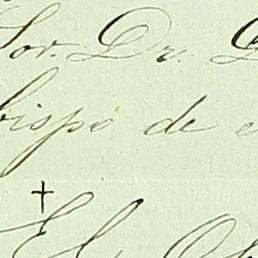 Sor. Dr.
bispo de
† El